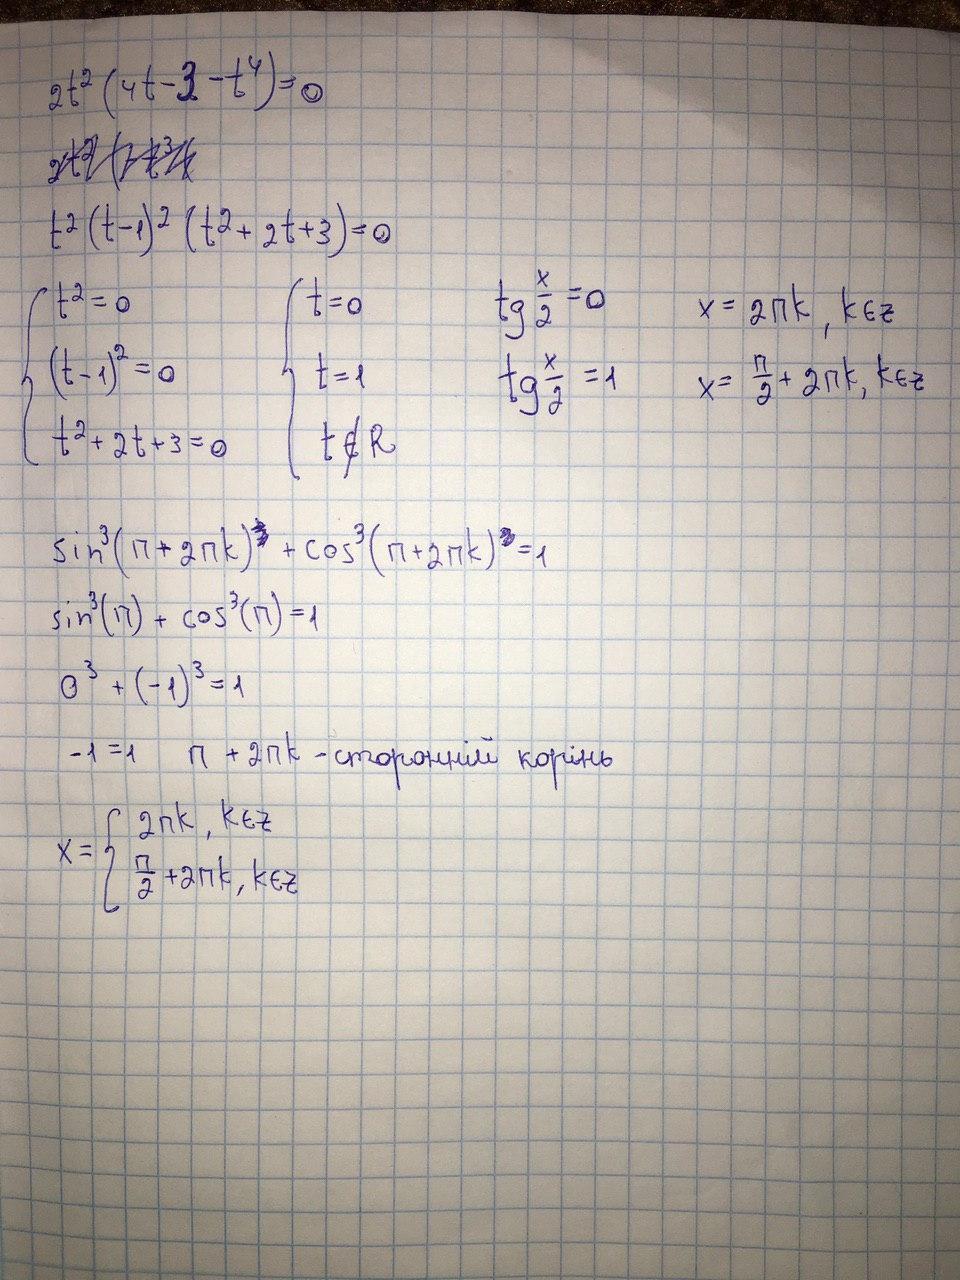 2t² (4t-3-t⁴)=0
t² (t-1)² (t²+2t+3)=0
t²=0 t=0 tg x/2 =0 x=2πk, k∈z
(t-1)²=0 t=1 tg x/2 =1 x= π/2 +2πk, k∈z
t²+2t+3=0 t∉R
sin³(π+2πk) + cos³(π+2πk)=1
sin³(π) + cos³(π)=1
0³ + (-1)³=1
-1=1 π+2πk - сторонній корінь
x= { 2πk, k∈z
π/2 +2πk, k∈z